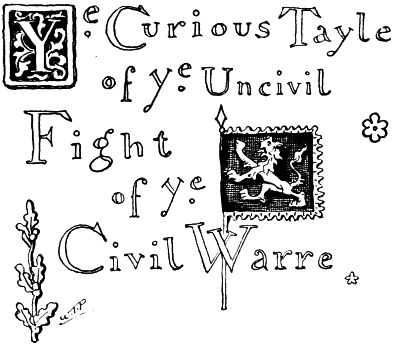 Ye. Curious Tayle
of ye. Uncivil
Fight
of ye.
Civil Warre
W.T.P.